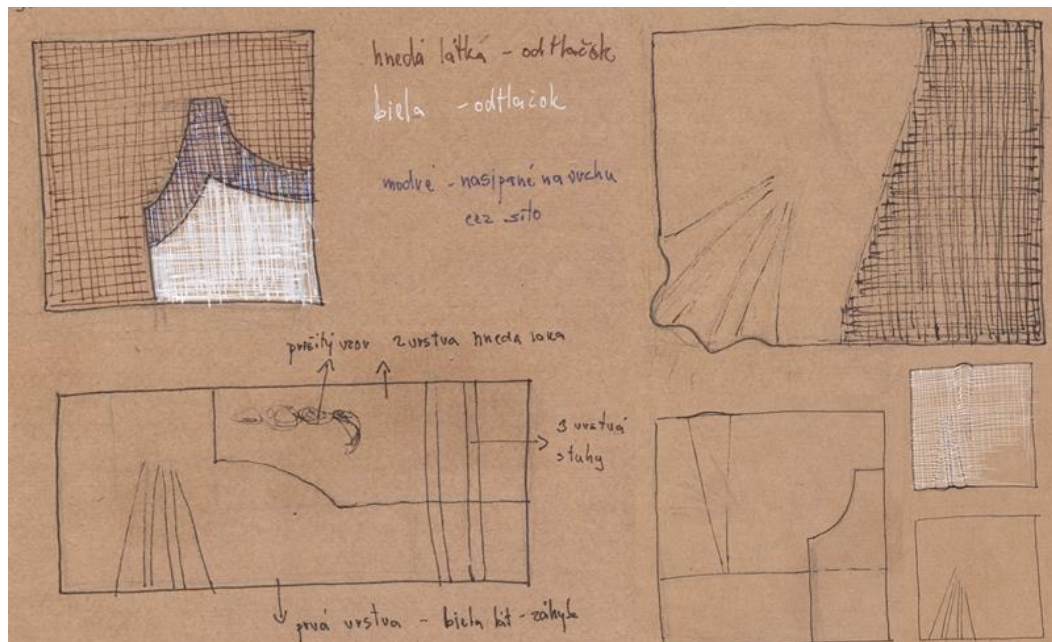 hnedá látká - odtlačok
biela - odtlačok
modré - nasipané na vrchu
cez sito
prišitý vzor
2 vrstva hneda laka
3 vrstvá
stuhy
prvá vrstva - biela lát - záhyby